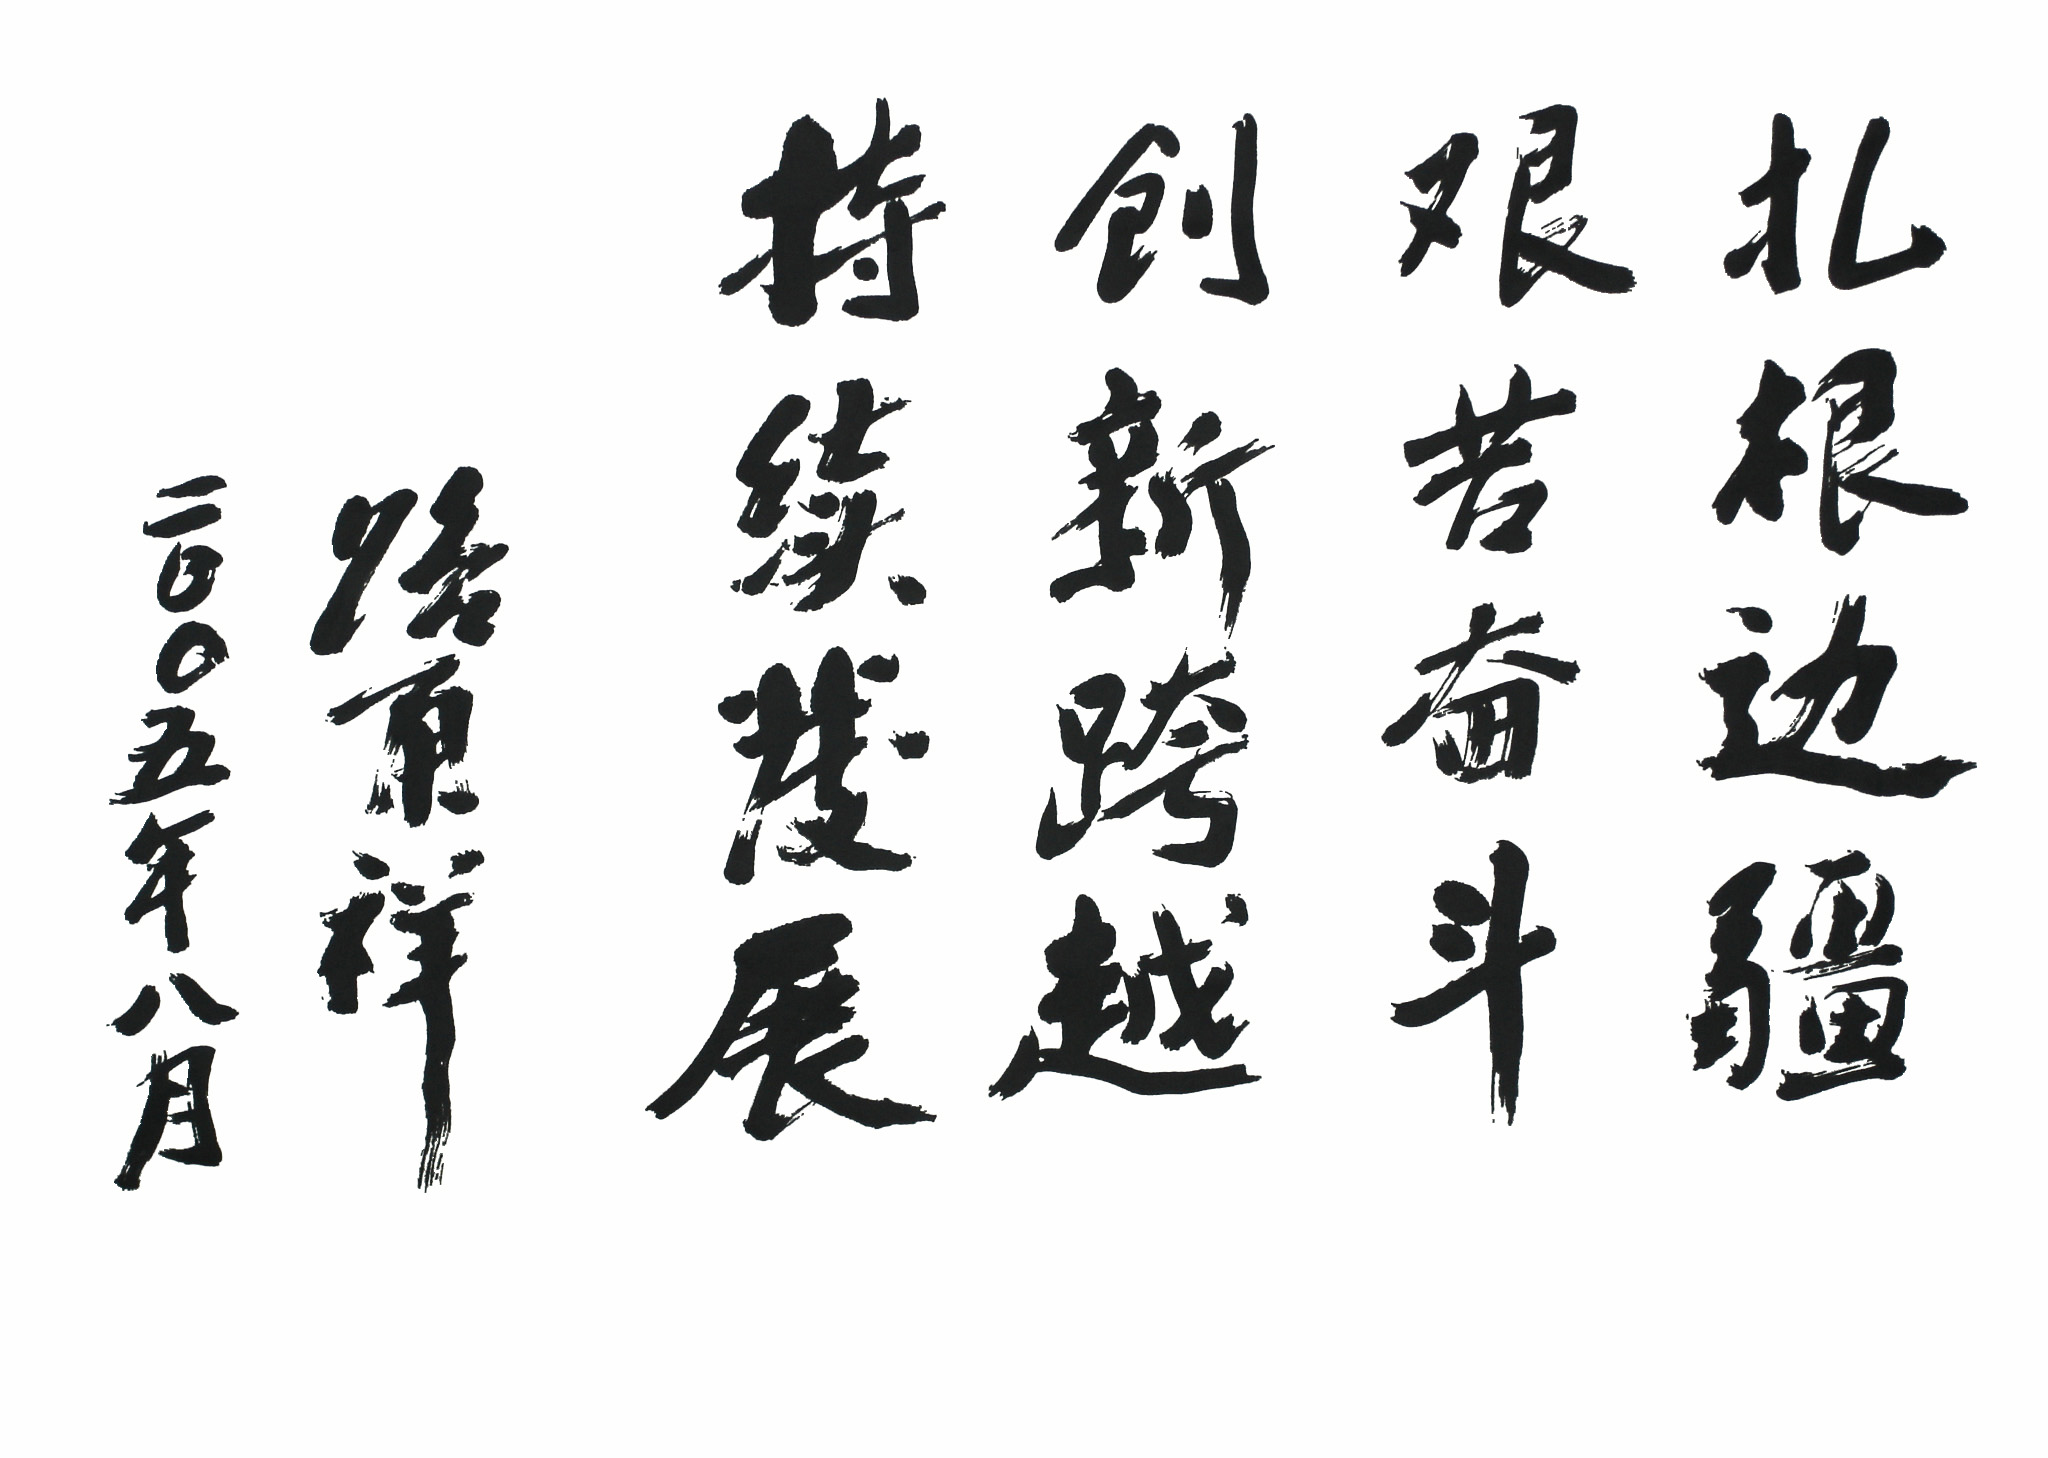 扎根边疆
艰苦奋斗
创新跨越
持续发展
路京祥
二〇〇五年八月